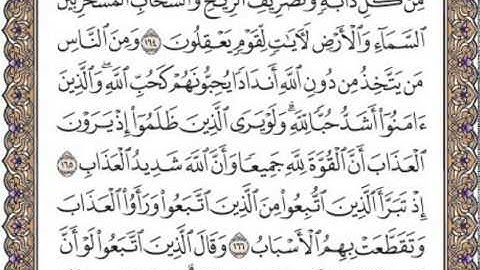 مِن كُلِّ دَآبَّةٍ وَتَصْرِيفِ ٱلرِّيَٰحِ وَٱلسَّحَابِ ٱلْمُسَخَّرِ بَيْنَ
ٱلسَّمَآءِ وَٱلْأَرْضِ لَأٓيَٰتٍ لِّقَوْمٍ يَعْقِلُونَ ١٦٤ وَمِنَ ٱلنَّاسِ
مَن يَتَّخِذُ مِن دُونِ ٱللَّهِ أَندَادًا يُحِبُّونَهُمْ كَحُبِّ ٱللَّهِ ۖ وَٱلَّذِينَ
ءَامَنُوٓا۟ أَشَدُّ حُبًّا لِّلَّهِ ۗ وَلَوْ يَرَى ٱلَّذِينَ ظَلَمُوٓا۟ إِذْ يَرَوْنَ
ٱلْعَذَابَ أَنَّ ٱلْقُوَّةَ لِلَّهِ جَمِيعًا وَأَنَّ ٱللَّهَ شَدِيدُ ٱلْعَذَابِ ١٦٥
إِذْ تَبَرَّأَ ٱلَّذِينَ ٱتُّبِعُوا۟ مِنَ ٱلَّذِينَ ٱتَّبَعُوا۟ وَرَأَوُا۟ ٱلْعَذَابَ
وَتَقَطَّعَتْ بِهِمُ ٱلْأَسْبَابُ ١٦٦ وَقَالَ ٱلَّذِينَ ٱتَّبَعُوا۟ لَوْ أَنَّ